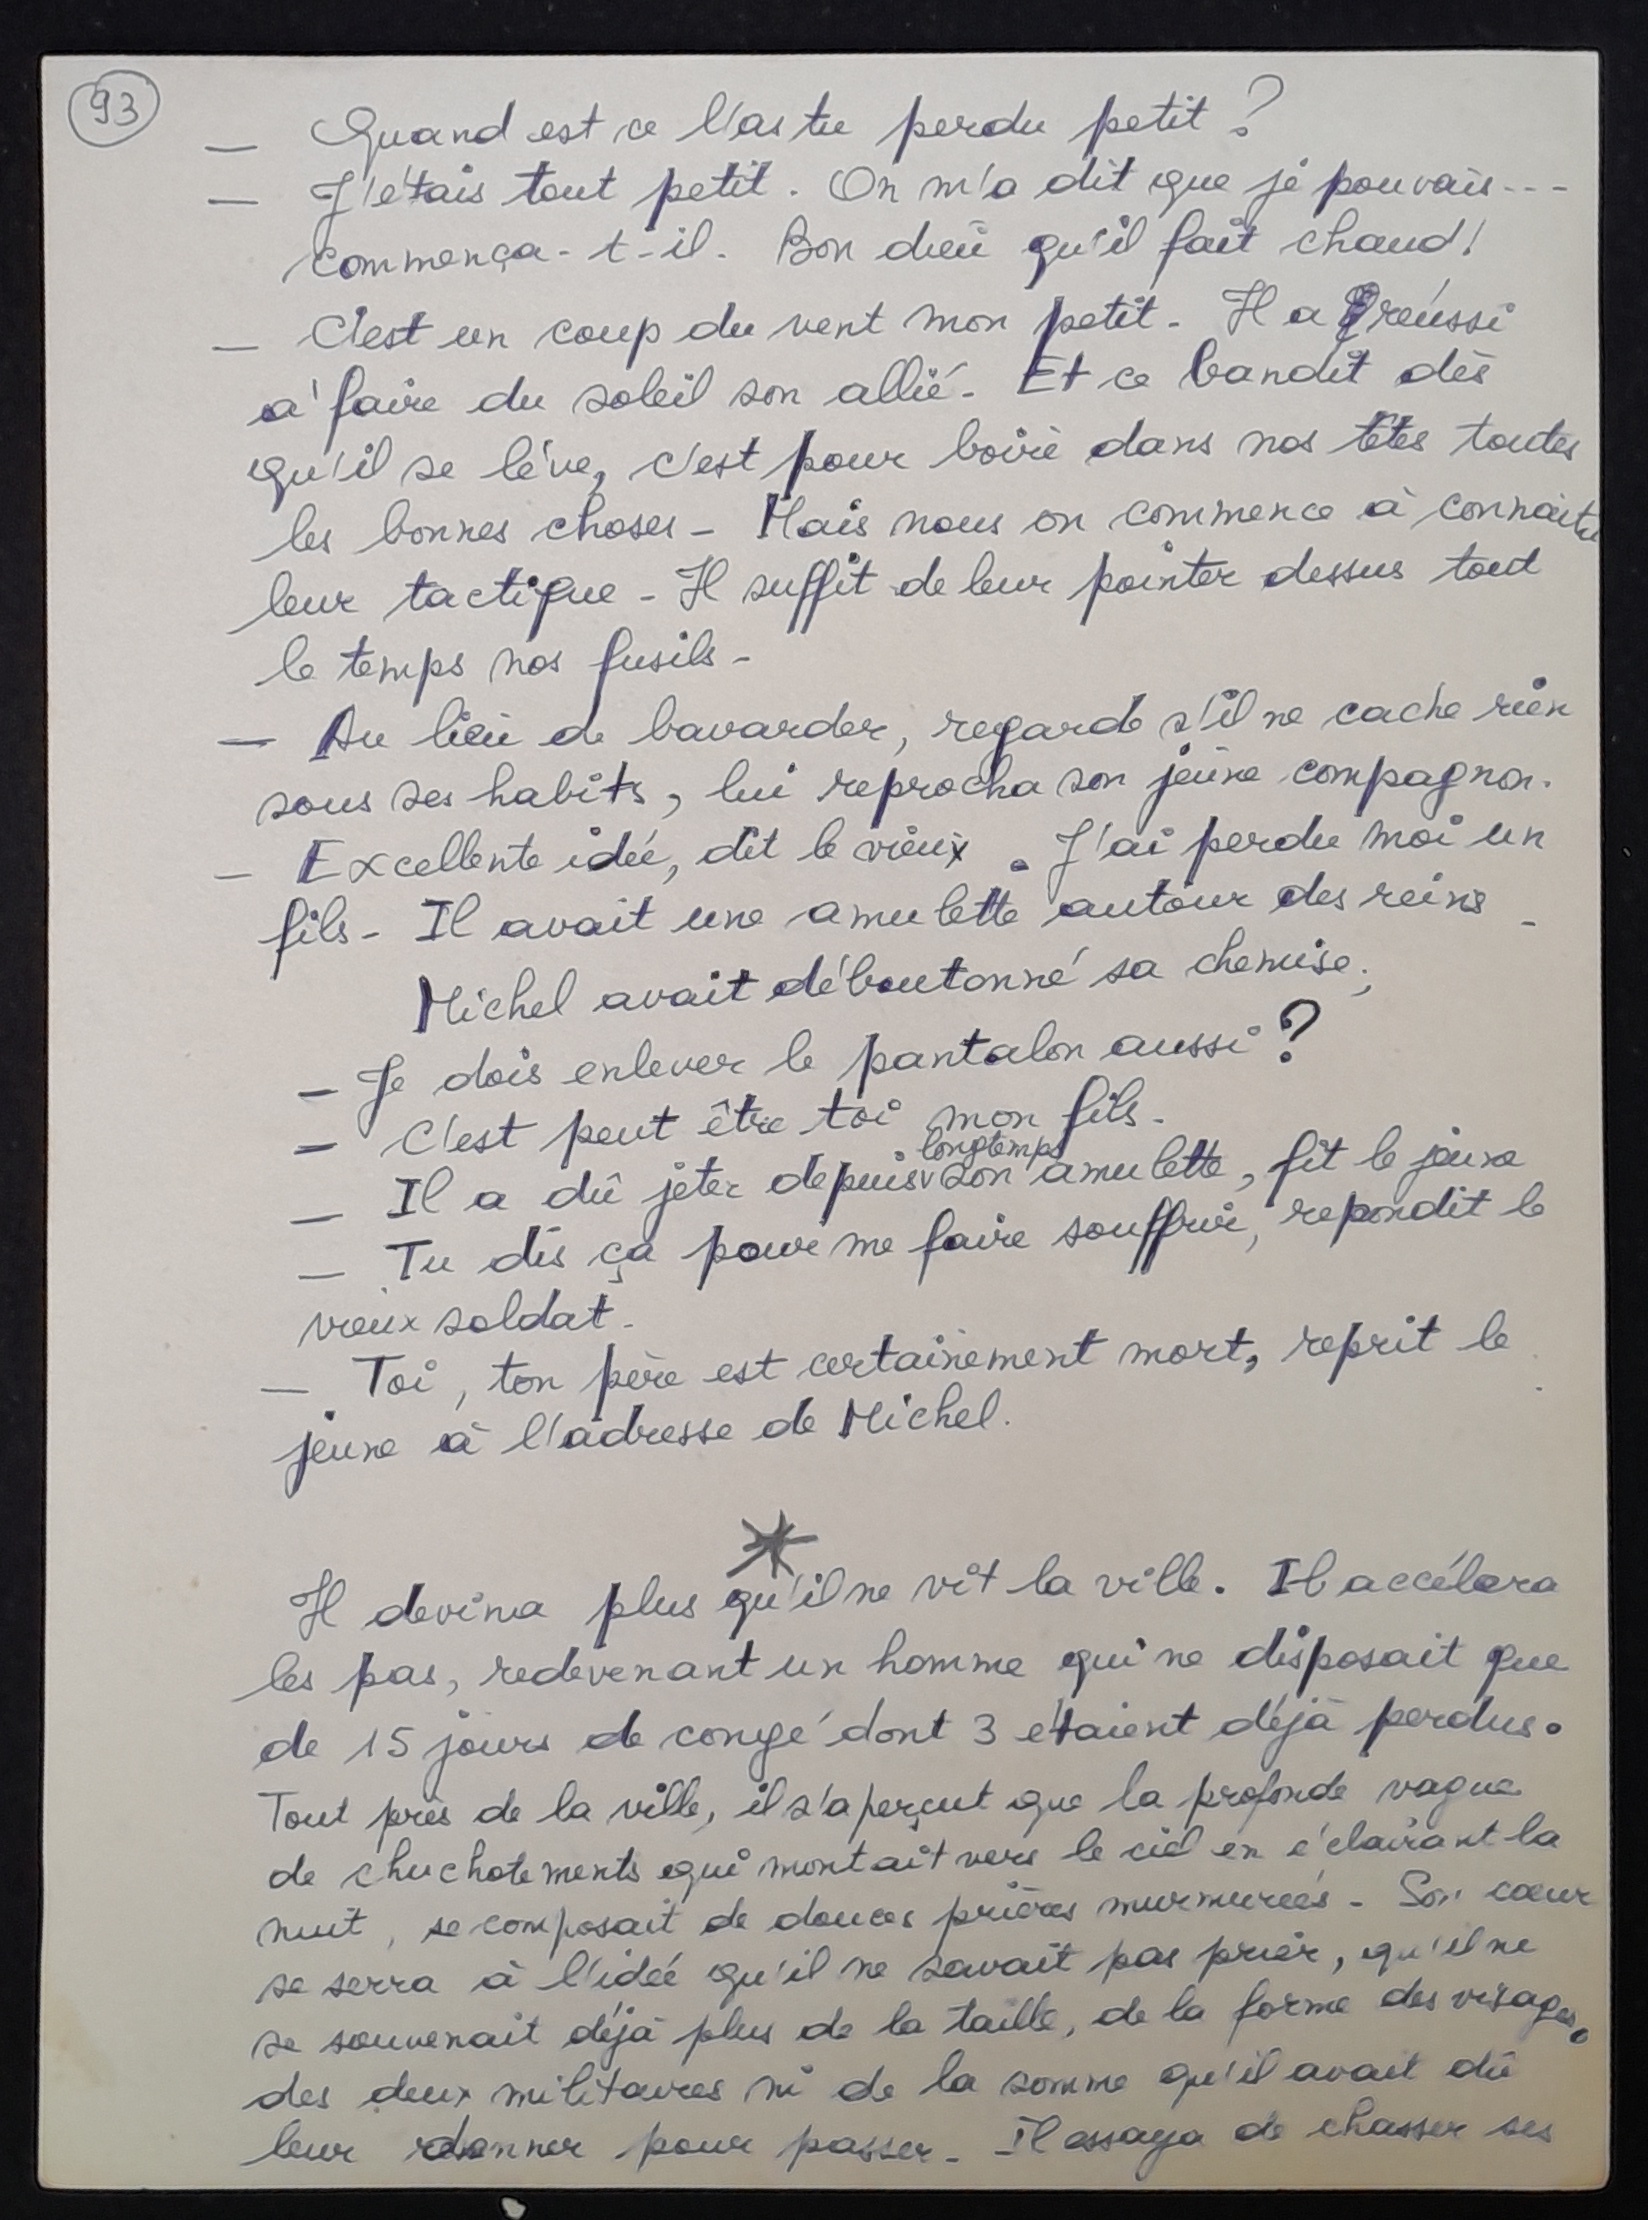 93
— Quand est ce l'as tu perdu petit ?
— J'étais tout petit. On m'a dit que je pouvais ---
commença-t-il. Bon dieu qu'il fait chaud !
— C'est un coup du vent mon petit - Il a réussi
à faire du soleil son allié - Et ce bandit dès
qu'il se lève, c'est pour boire dans nos têtes toutes
les bonnes choses - Mais nous on commence à connaître
leur tactique - Il suffit de leur pointer dessus tout
le temps nos fusils -
— Au lieu de bavarder, regarde s'il ne cache rien
sous ses habits, lui reprocha son jeune compagnon.
— Excellente idée, dit le vieux. J'ai perdu moi un
fils - Il avait une amulette autour des reins -
Michel avait déboutonné sa chemise;
— Je dois enlever le pantalon aussi ?
— C'est peut être toi mon fils -
— Il a dû jeter depuis longtemps son amulette, fit le jeune
— Tu dis ça pour me faire souffrir, repondit le
vieux soldat -
— Toi, ton père est certainement mort, reprit le
jeune à l'adresse de Michel.
*
Il devina plus qu'il ne vit la ville. Il accéléra
les pas, redevenant un homme qui ne disposait que
de 15 jours de congé dont 3 étaient déjà perdus.
Tout près de la ville, il s'aperçut que la profonde vague
de chuchotements qui montait vers le ciel en éclairant la
nuit, se composait de douces prières murmurées - Son cœur
se serra à l'idée qu'il ne savait pas prier, qu'il ne
se souvenait déjà plus de la taille, de la forme des visages.
des deux militaires ni de la somme qu'il avait dû
leur donner pour passer - Il essaya de chasser ses